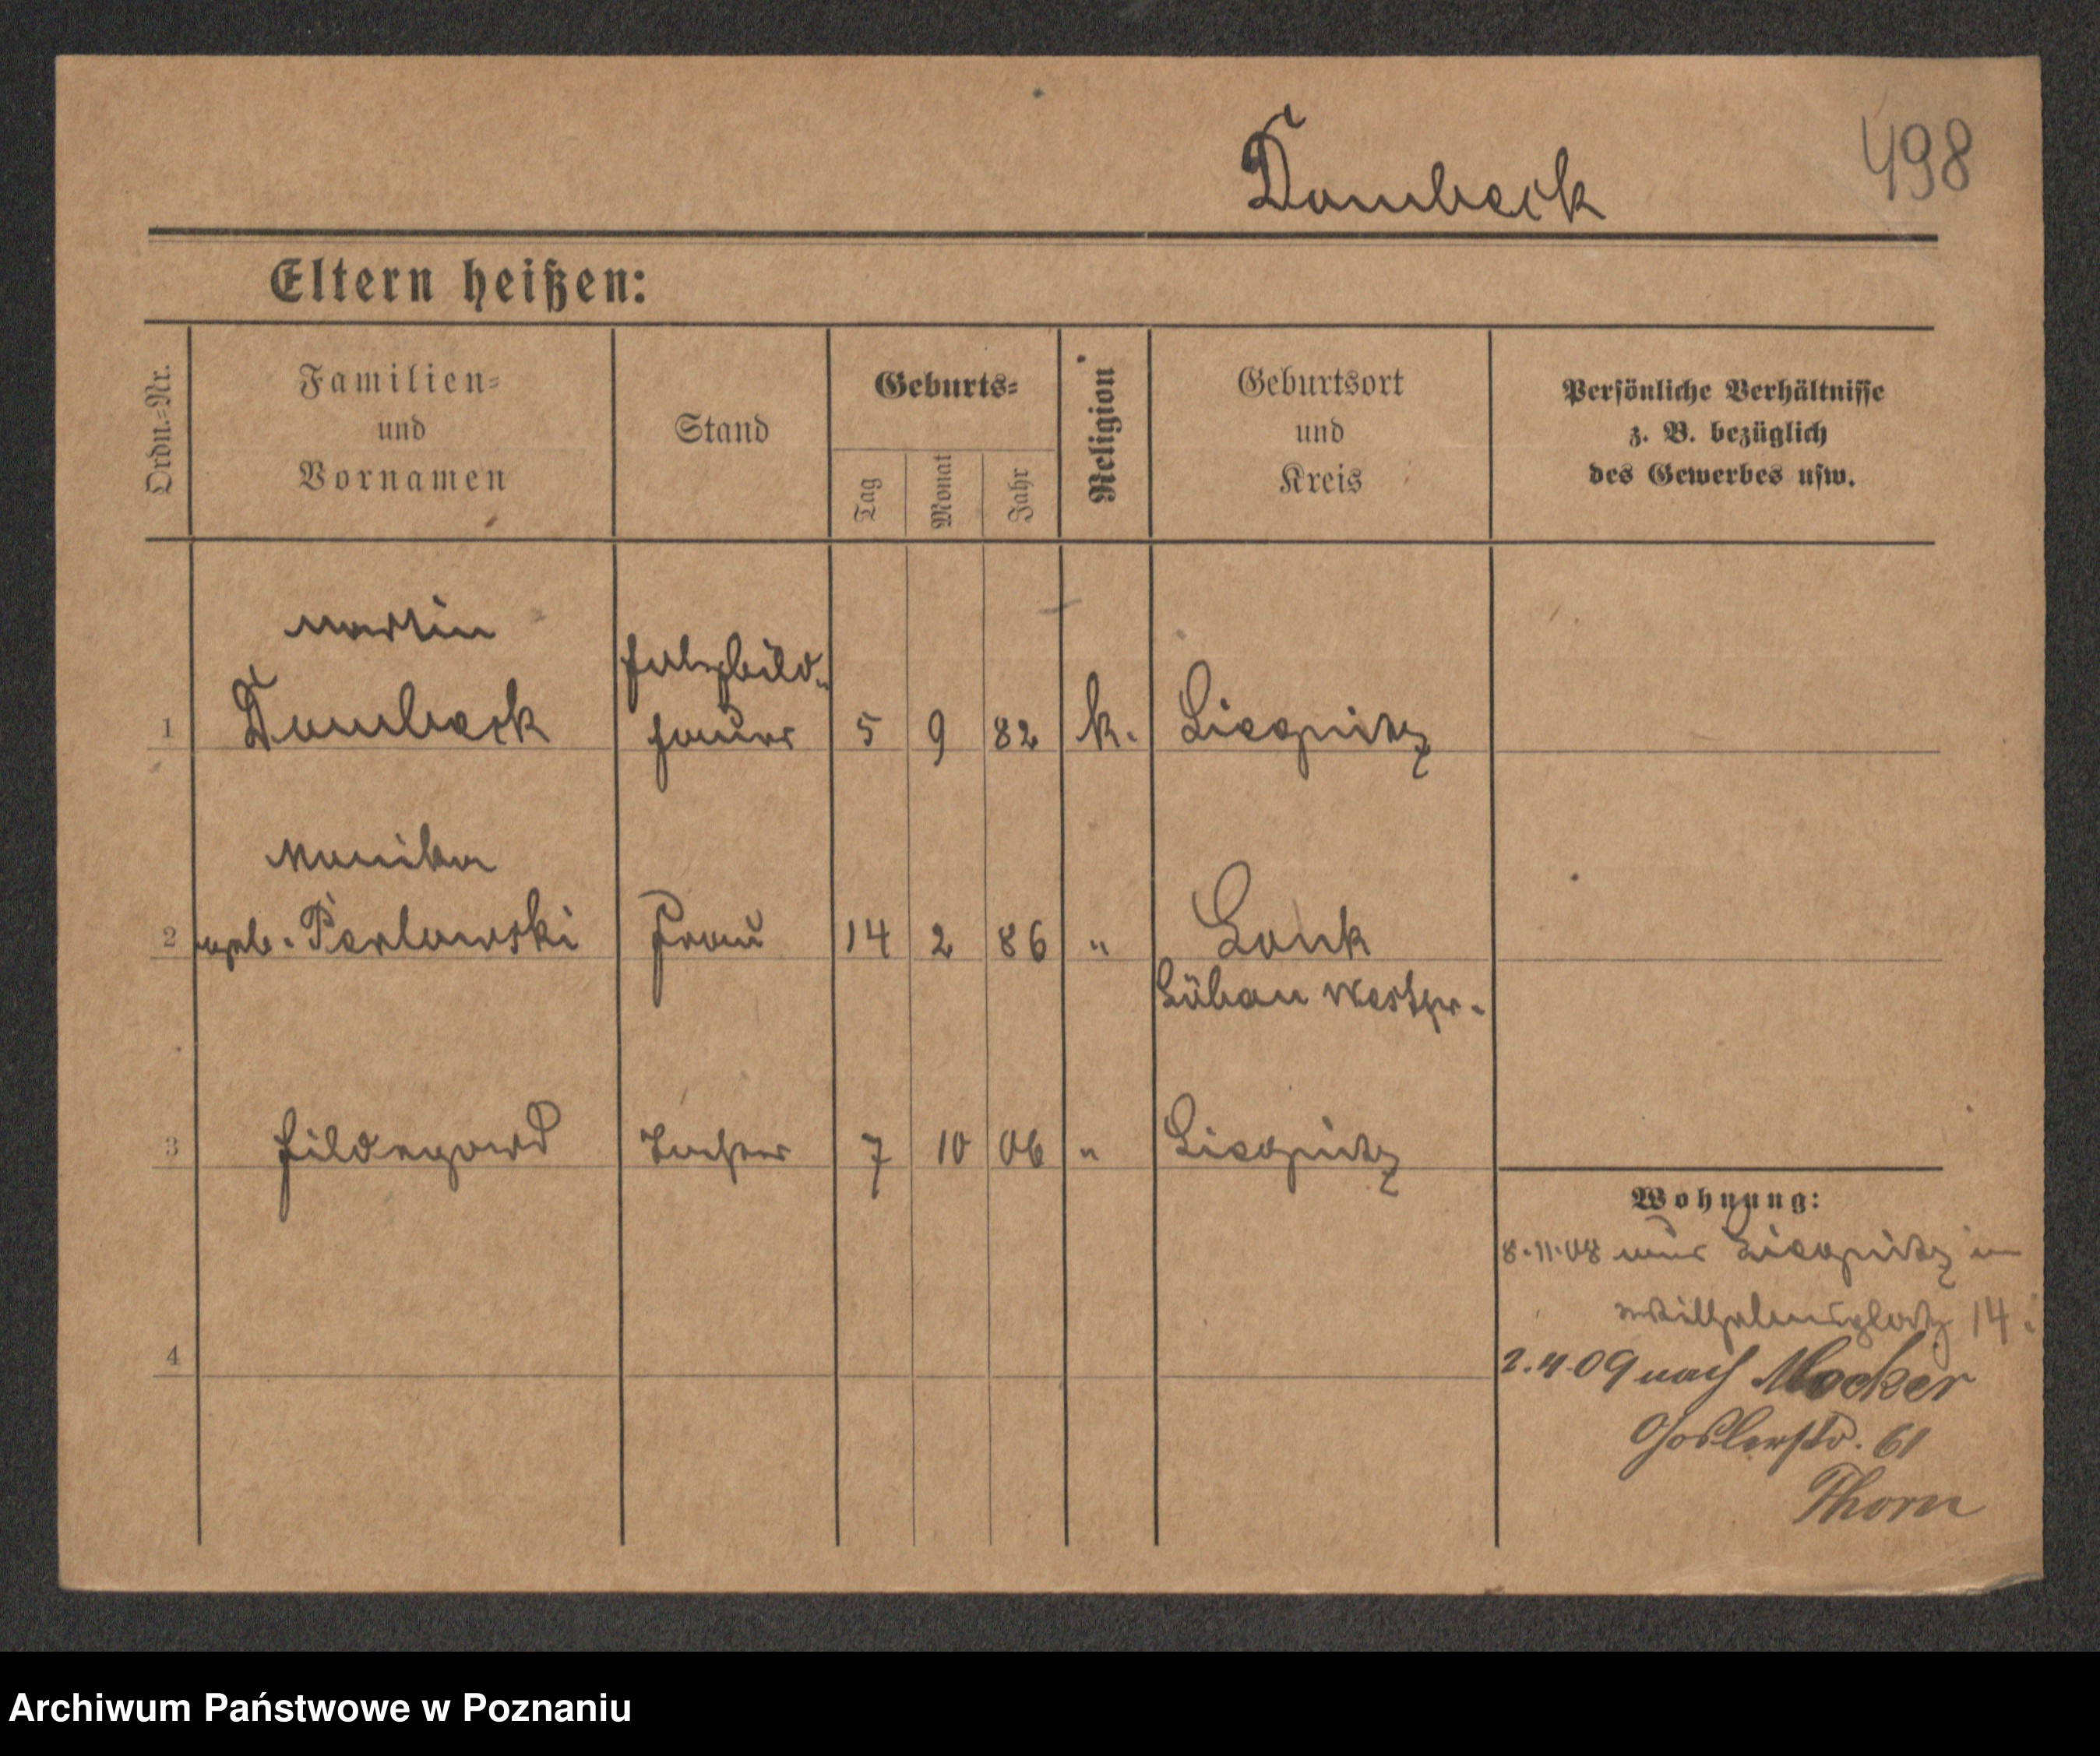 498
Dambeck
Eltern heißen:
Ordn.-Nr.
Familien-
und
Vornamen
Stand
Geburts-
Tag
Monat
Jahr
Religion
Geburtsort
und
Kreis
Persönliche Verhältnisse
z. B. bezüglich
des Gewerbes usw.
Martin
Holzbild-
1 Dambeck hauer 5 9 82 k. Liegnitz
Monika
2 geb. Perlowski Frau 14 2 86 " Lonk
Löbau Westpr.
3 Hildegard Tochter 7 10 06 " Liegnitz
Wohnung:
8.11.08 aus Liegnitz in
Wilhelmsplatz 14.
4
2.4.09 nach Mocker
Goslerstr. 61
Thorn
Archiwum Państwowe w Poznaniu